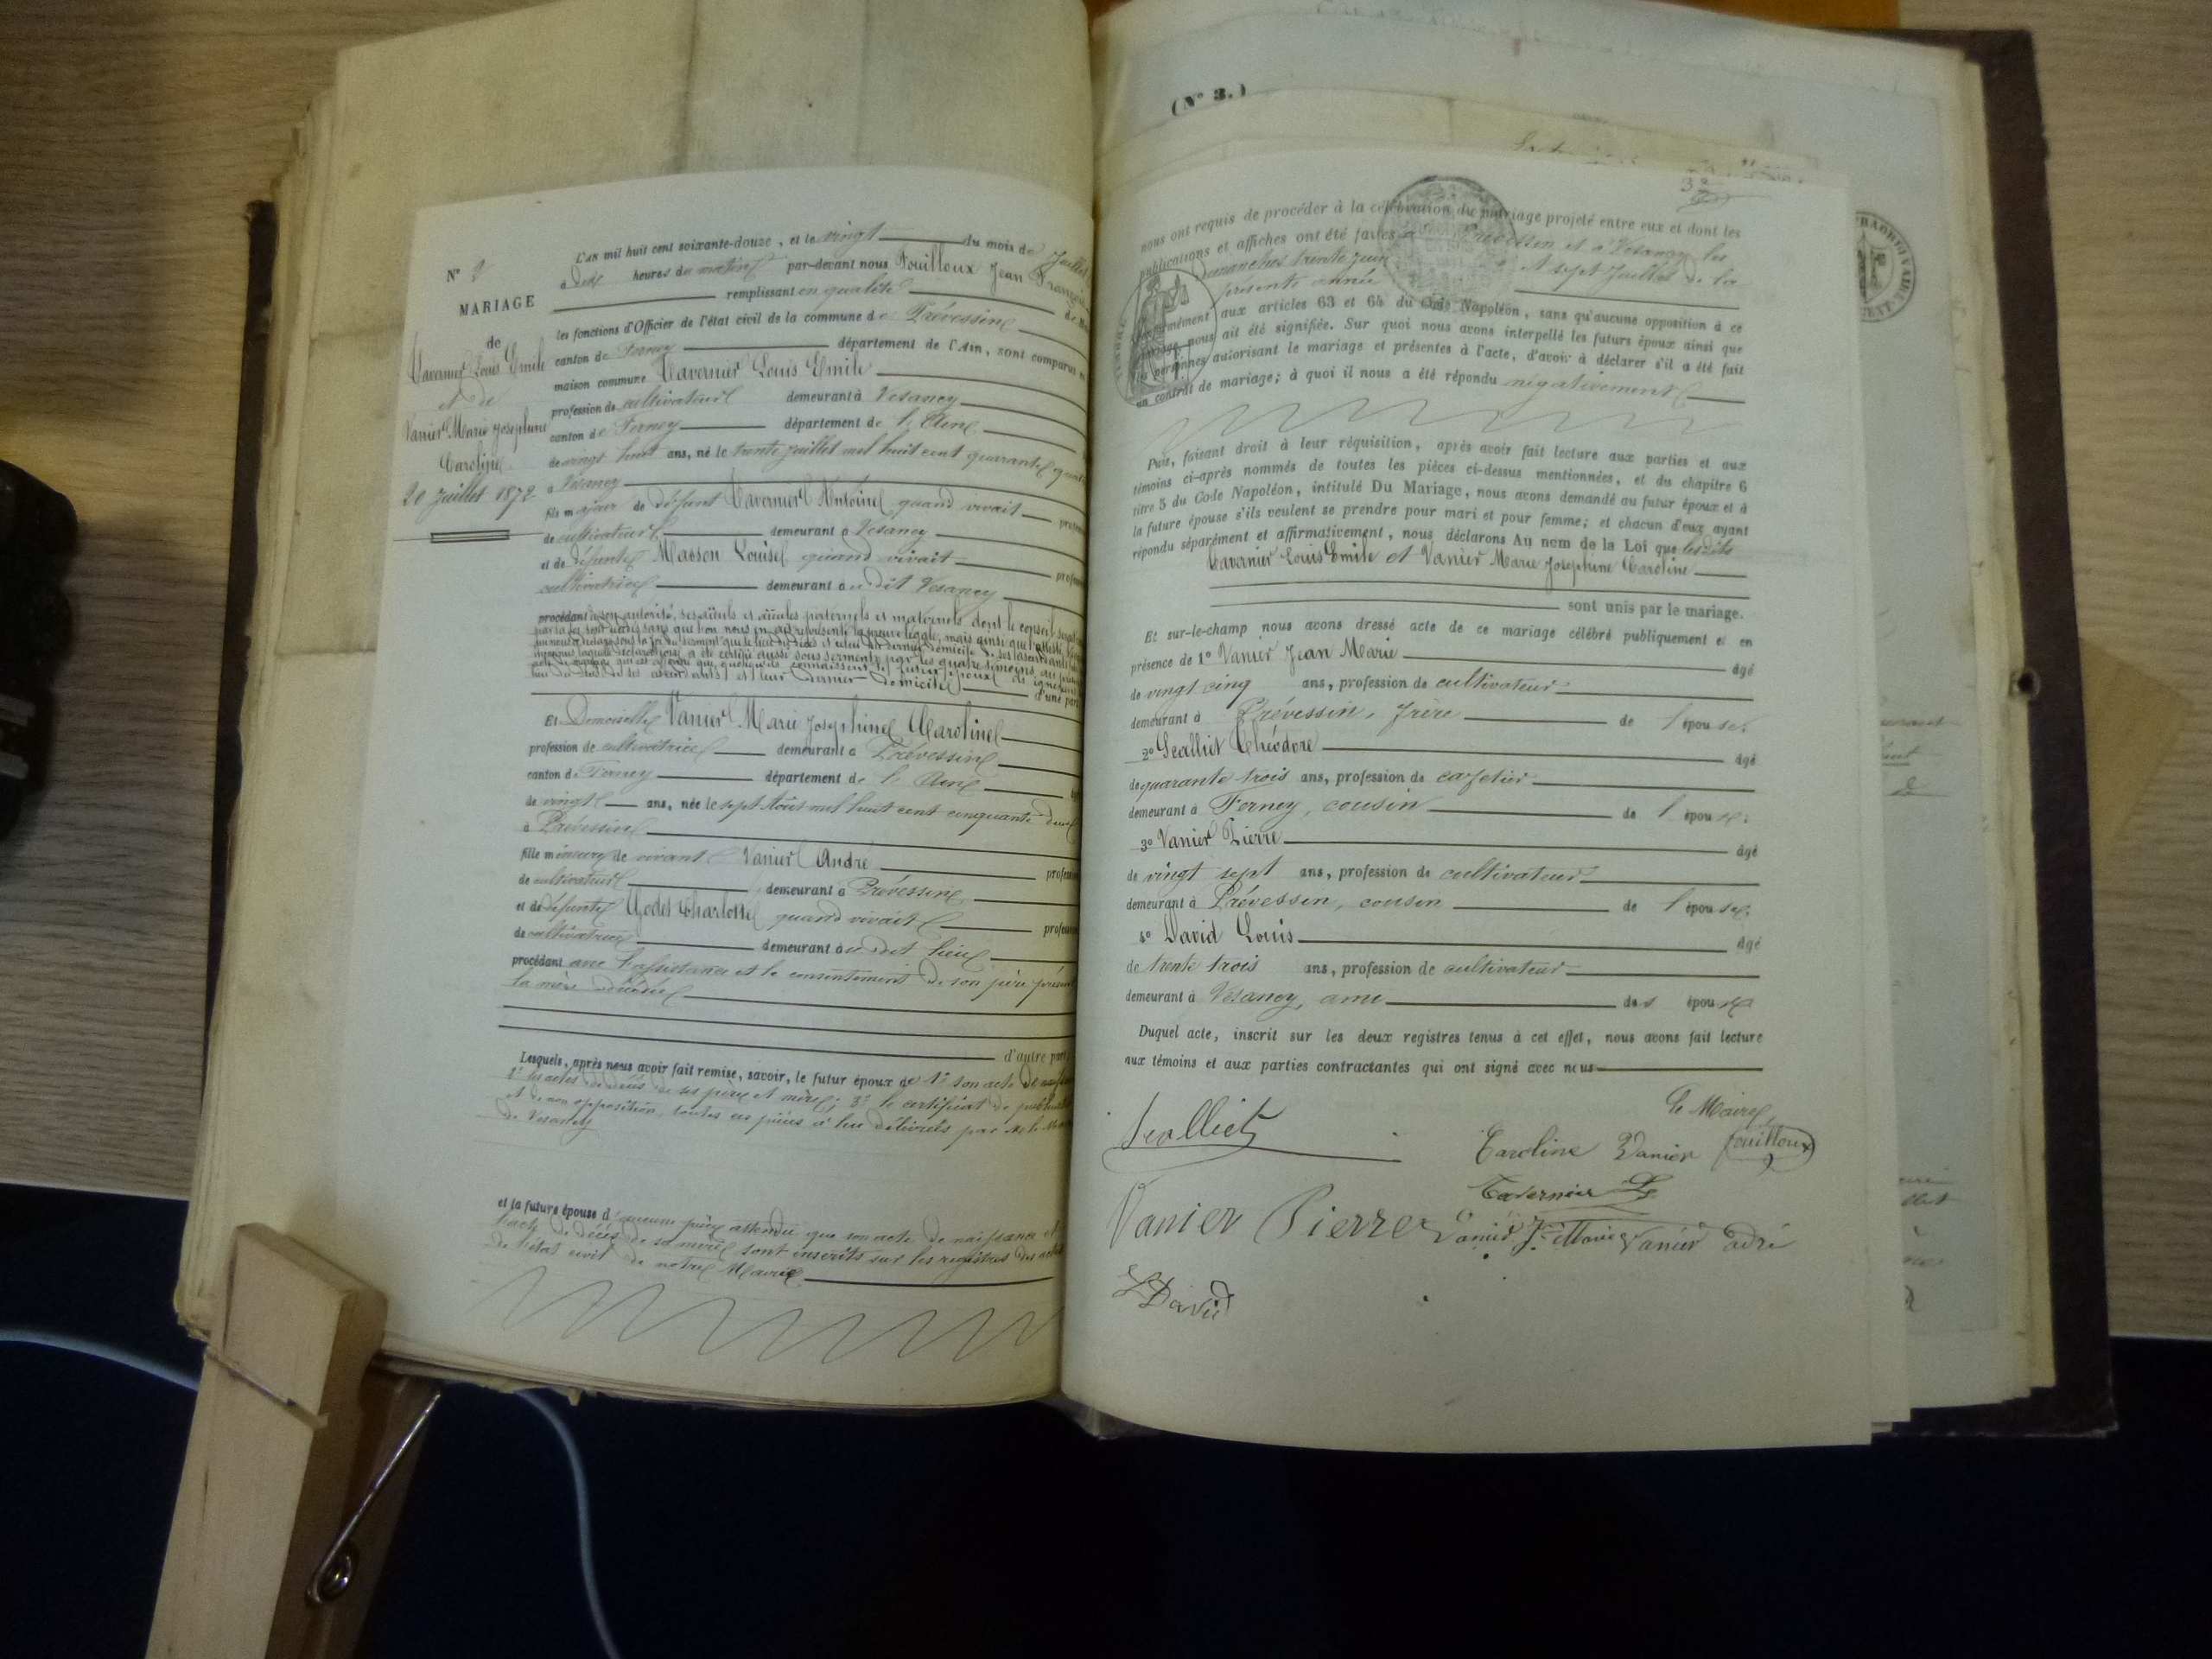 (N° 3.)
N° 2
MARIAGE
de
Tavernier Louis Emile
et de
Vanier Marie Joséphine
Caroline
20 Juillet 1872
L'an mil huit cent soixante-douze, et le vingt du mois de Juillet
à dix heures du matin par-devant nous Fouilloux Jean François
remplissant en qualité de
les fonctions d'Officier de l'état civil de la commune de Prévessin
canton de Ferney département de l'Ain, sont comparus en
maison commune Tavernier Louis Emile
profession de cultivateur demeurant à Vesancy
canton de Ferney département de l'Ain
de vingt huit ans, né le trente juillet mil huit cent quarante
à Vesancy
fils majeur de défunt Tavernier Antoine quand vivait
de cultivateur demeurant à Vesancy
et de défunte Masson Louise quand vivait
cultivatrice demeurant au dit Vesancy
procédant de son autorité, ses aïeuls et aïeules paternels et maternels dont le conseil
leur dernier domicile d'une part
Et Demoiselle Vanier Marie Joséphine Caroline
profession de cultivatrice demeurant à Prévessin
canton de Ferney département de l'Ain
de vingt ans, née le sept Août mil huit cent cinquante deux
à Prévessin
fille mineure de vivant Vanier André
de cultivateur demeurant à Prévessin
et de défunte Godet Charlotte quand vivait
de cultivatrice demeurant au dit lieu
procédant avec l'assistance et le consentement de son père présent
la mère décédée
d'autre part
Lesquels, après nous avoir fait remise, savoir, le futur époux de 1° son acte de
2° les actes de décès de ses père et mère; 3° le certificat de
et de non opposition, toutes ces pièces à lui délivrées par
de Vesancy
et la future épouse d'aucune pièce attendu que son acte de naissance et
l'acte de décès de sa mère sont inscrits sur les registres des actes
de l'état civil de notre Mairie
nous ont requis de procéder à la célébration du mariage projeté entre eux et dont les
publications et affiches ont été faites à Prévessin et à Vesancy les
dimanches trente juin et sept Juillet de la
présente année
conformément aux articles 63 et 64 du Code Napoléon, sans qu'aucune opposition à ce
mariage nous ait été signifiée. Sur quoi nous avons interpellé les futurs époux ainsi que
les personnes autorisant le mariage et présentes à l'acte, d'avoir à déclarer s'il a été fait
un contrat de mariage; à quoi il nous a été répondu négativement
Puis, faisant droit à leur réquisition, après avoir fait lecture aux parties et aux
témoins ci-après nommés de toutes les pièces ci-dessus mentionnées, et du chapitre 6
titre 5 du Code Napoléon, intitulé Du Mariage, nous avons demandé au futur époux et à
la future épouse s'ils veulent se prendre pour mari et pour femme; et chacun d'eux ayant
répondu séparément et affirmativement, nous déclarons Au nom de la Loi que lesdits
Tavernier Louis Emile et Vanier Marie Joséphine Caroline
sont unis par le mariage.
Et sur-le-champ nous avons dressé acte de ce mariage célébré publiquement et en
présence de 1° Vanier Jean Marie âgé
de vingt cinq ans, profession de cultivateur
demeurant à Prévessin, frère de l'épouse.
2° Scalliet Théodore âgé
de quarante trois ans, profession de cafetier
demeurant à Ferney, cousin de l'épouse.
3° Vanier Pierre âgé
de vingt sept ans, profession de cultivateur
demeurant à Prévessin, cousin de l'épouse.
4° David Louis âgé
de trente trois ans, profession de cultivateur
demeurant à Vesancy, ami des époux
Duquel acte, inscrit sur les deux registres tenus à cet effet, nous avons fait lecture
aux témoins et aux parties contractantes qui ont signé avec nous
Le Maire
Scalliet Caroline Vanier Fouilloux
Tavernier L
Vanier Pierre Vanier J. Marie Vanier adré
L David